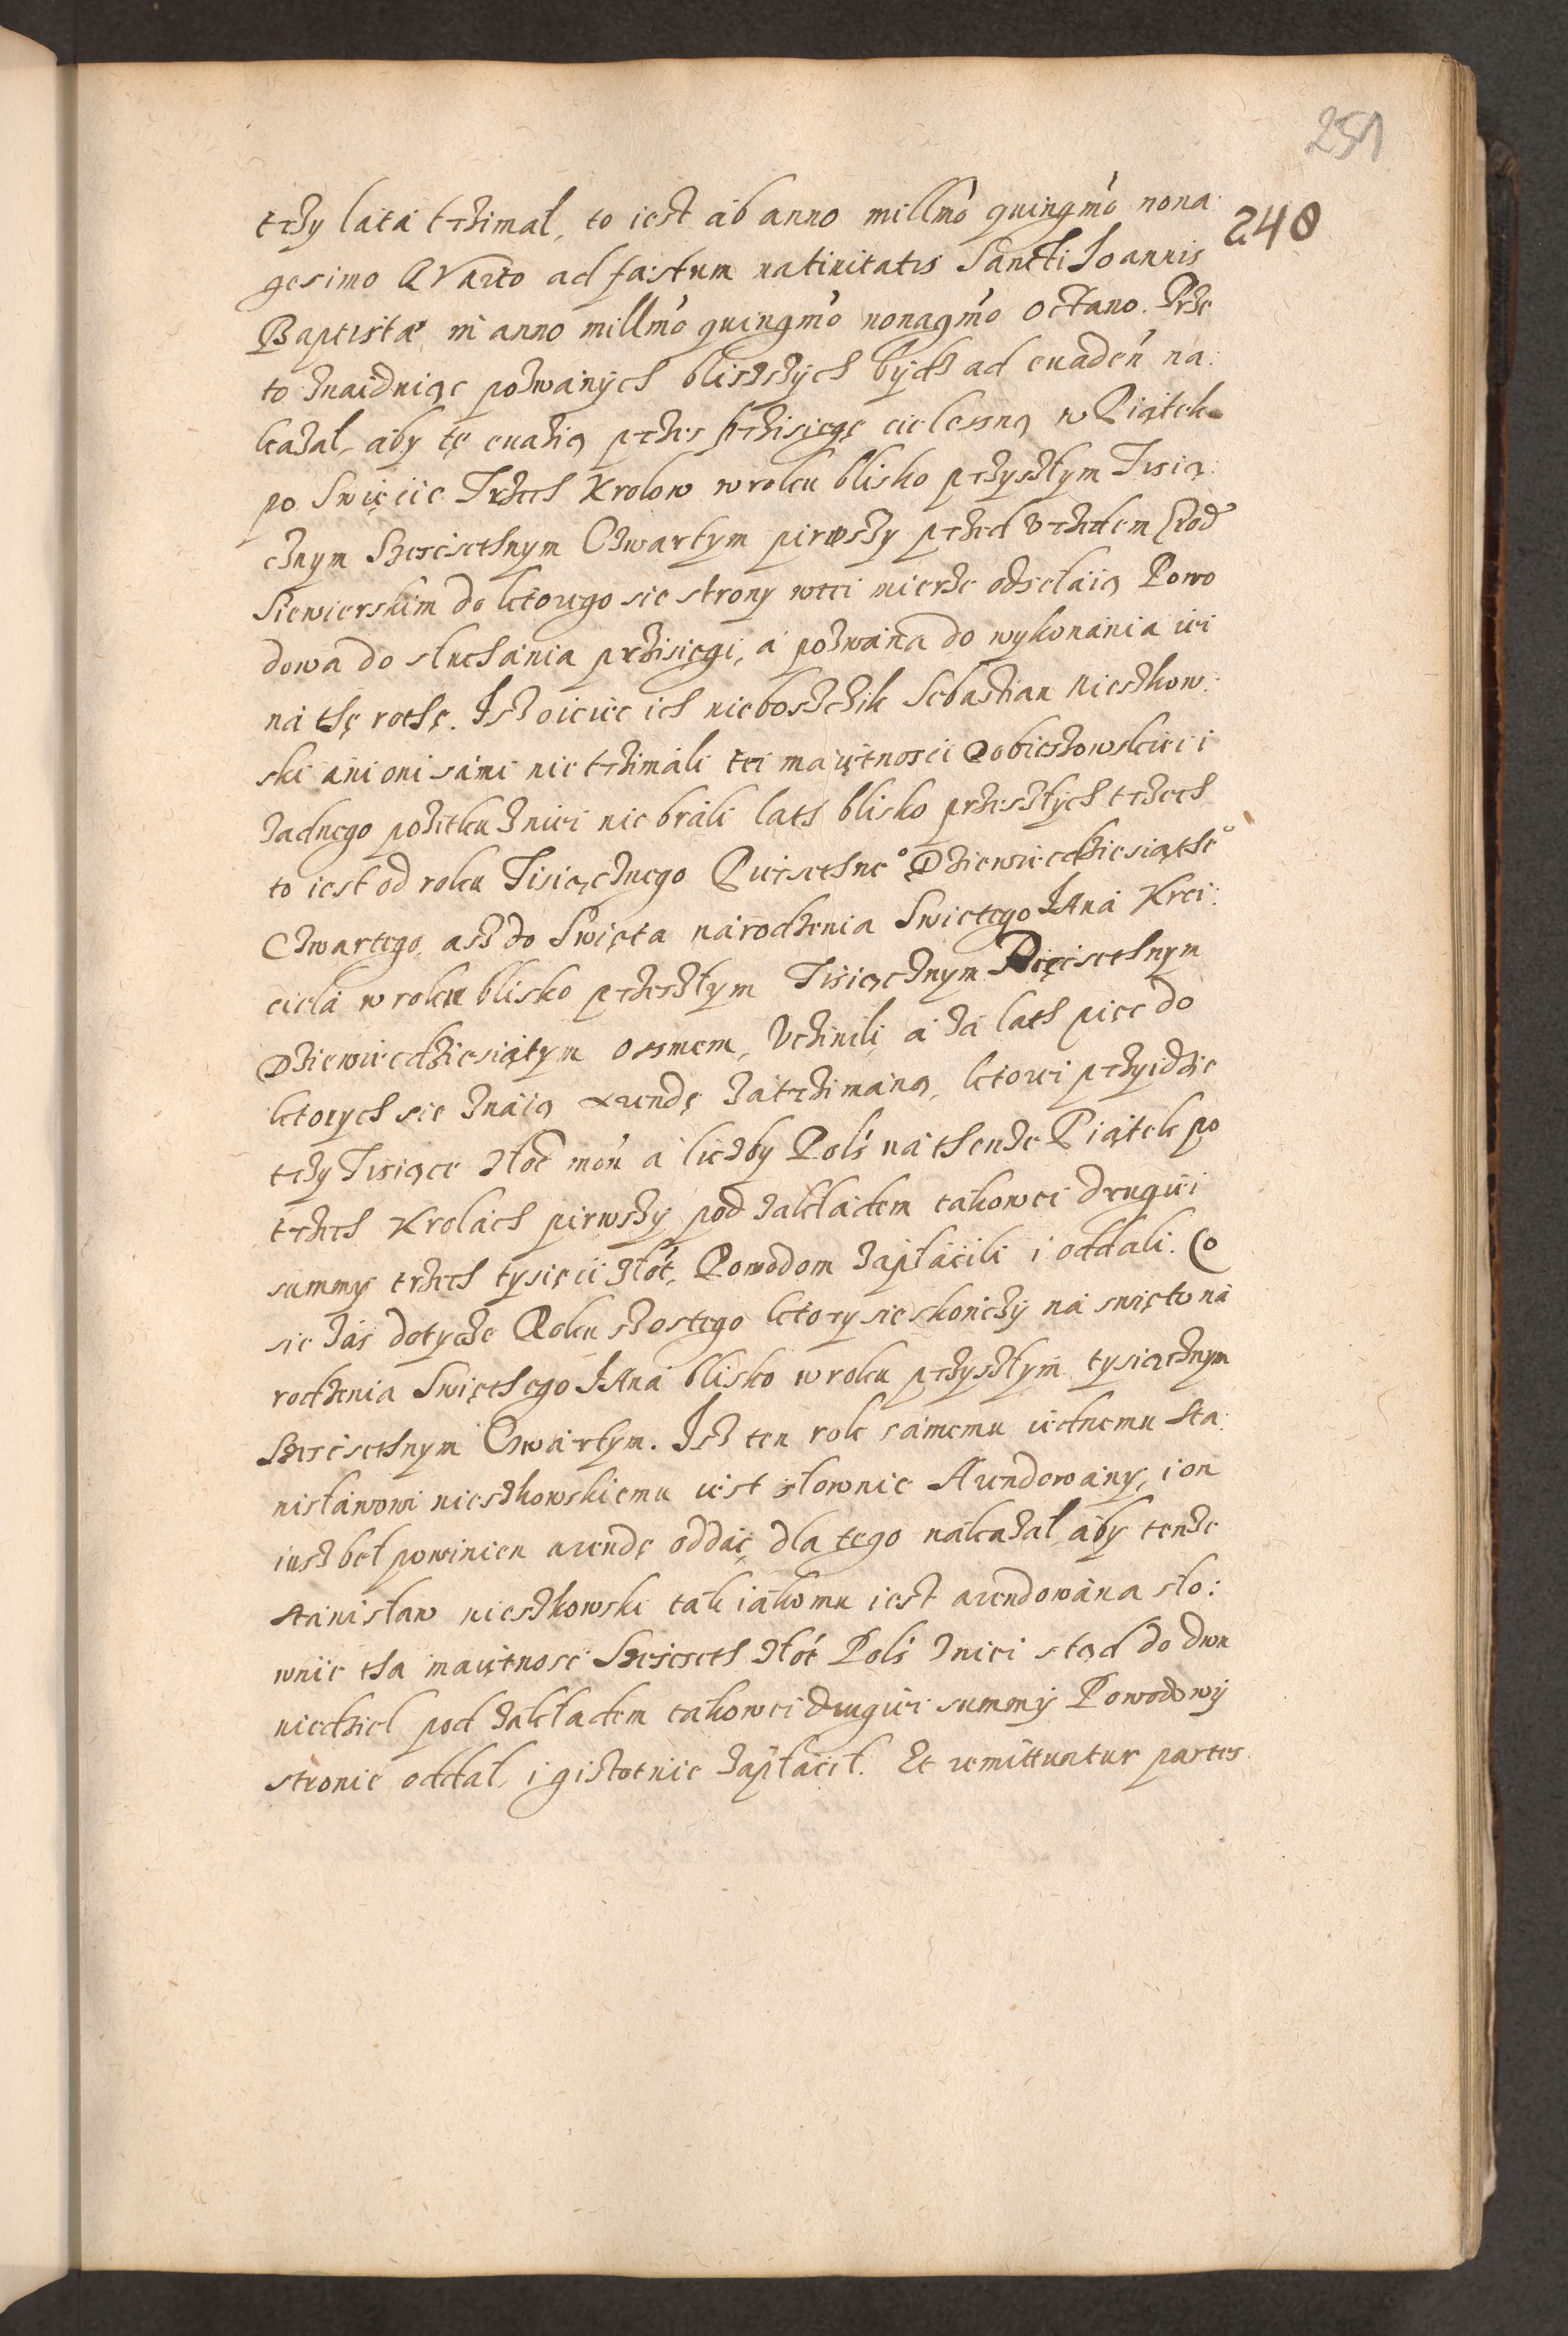 251
248
trzy lata trzimał, to iest ab anno millmo quingmo nona:
gesimo QVarto ad fæstum natiuitatis Sancti Ioannis
Baptistæ in anno millmo quingmo nonagmo octauo. Prze
to znaiduiąc pozwanych bliszszych bydz ad euaden na:
kazał, aby tę euazią przes przisięgę cielesną w Piątek
po Swięcie Trzech Krolow w roku blisko przyszłym Tisią:
cznym Szescsethnym Czwartym pirwszy przed Vrzedem Grod
Siewierskim do ktorego sie strony wtei mierze odsełaią Powo
dowa do słuchania przisięgi, a pozwana do wykonania iei
na thę rothę. Isz ociec ich nieboszczik Sebastian Nieszkow:
ski ani oni sami nie trzimali tei maiętnosci Dobieszowskiei i
zadnego pozitku zniei nie brali lath blisko przeszłych trzech
to iest od roku Tisiącznego Pięcsethne° Dziewięcdziesiąthe°
Czwartego, asz do Swięta narodzenia Swiętego IAna Krci:
ciela w roku blisko przeszłym Tisiącznym Pięcsethnym
Dziewięcdziesiątym ossmem, Vczinili, a za lath pięc do
ktorych sie znaią arendę zatrzimaną, ktorei przyidzie
trzy Tisiące złot mon a liczby Pols na thenze Piątek po
trzech Krolach pirwszy pod zakładem takowei drugiei
summy trzech tysięcii złot, Powodom zapłacili i oddali. Co
sie zas dotycze Roku szostego ktory sie skonczy na swięto na
rodzenia Swięthego IAna blisko w roku przyszłym tysiącznym
Szescsethnym Czwartym. Isz ten rok samemu iednemu Sta:
nisławowi nieszkowskiemu iest słownie Arendowany, i on
iusz beł powinien arendę oddac, dla tego nakazał, aby tenze
Stanisław nieszkowski tak iako mu iest arendowana sło:
wnie tha maiętnosc Szescseth złot Pols zniei stąd do dwu
niedziel pod zakładem takowei drugiei summy Powodowy
stronie oddał, i gisztotnie zapłacił. Et remittuntur partes